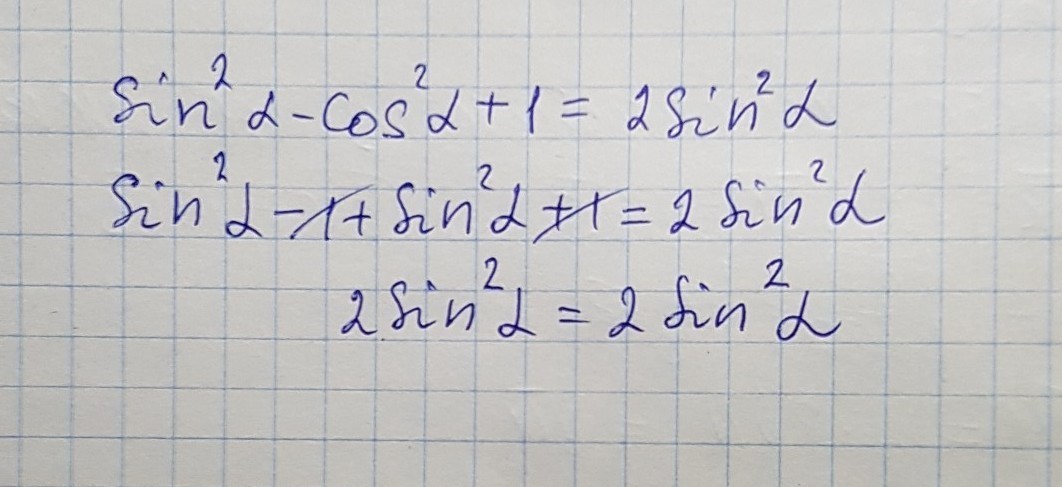 sin²α - cos²α + 1 = 2 sin²α
sin²α - 1 + sin²α + 1 = 2 sin²α
2 sin²α = 2 sin²α